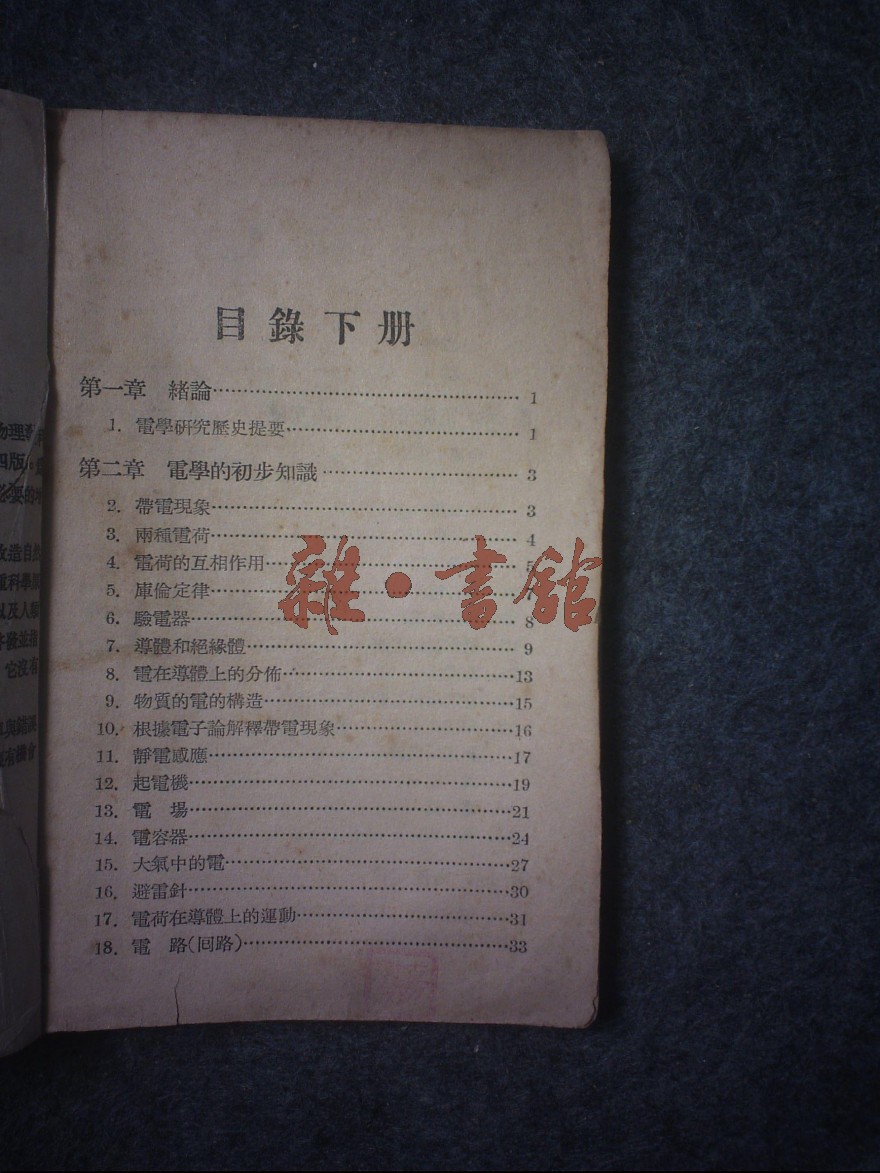 目錄下册
第一章 緒論 1
1. 電學研究歷史提要 1
第二章 電學的初步知識 3
2. 帶電現象 3
3. 兩種電荷 4
4. 電荷的互相作用 5
5. 庫倫定律
6. 驗電器 8
7. 導體和絕緣體 9
8. 電在導體上的分佈 13
9. 物質的電的構造 15
10. 根據電子論解釋帶電現象 16
11. 靜電感應 17
12. 起電機 19
13. 電 場 21
14. 電容器 24
15. 大氣中的電 27
16. 避雷針 30
17. 電荷在導體上的運動 31
18. 電 路(回路) 33
雜·書館
物理
四版
必要的
改造自然
科學
以及人類
它沒有
有機會